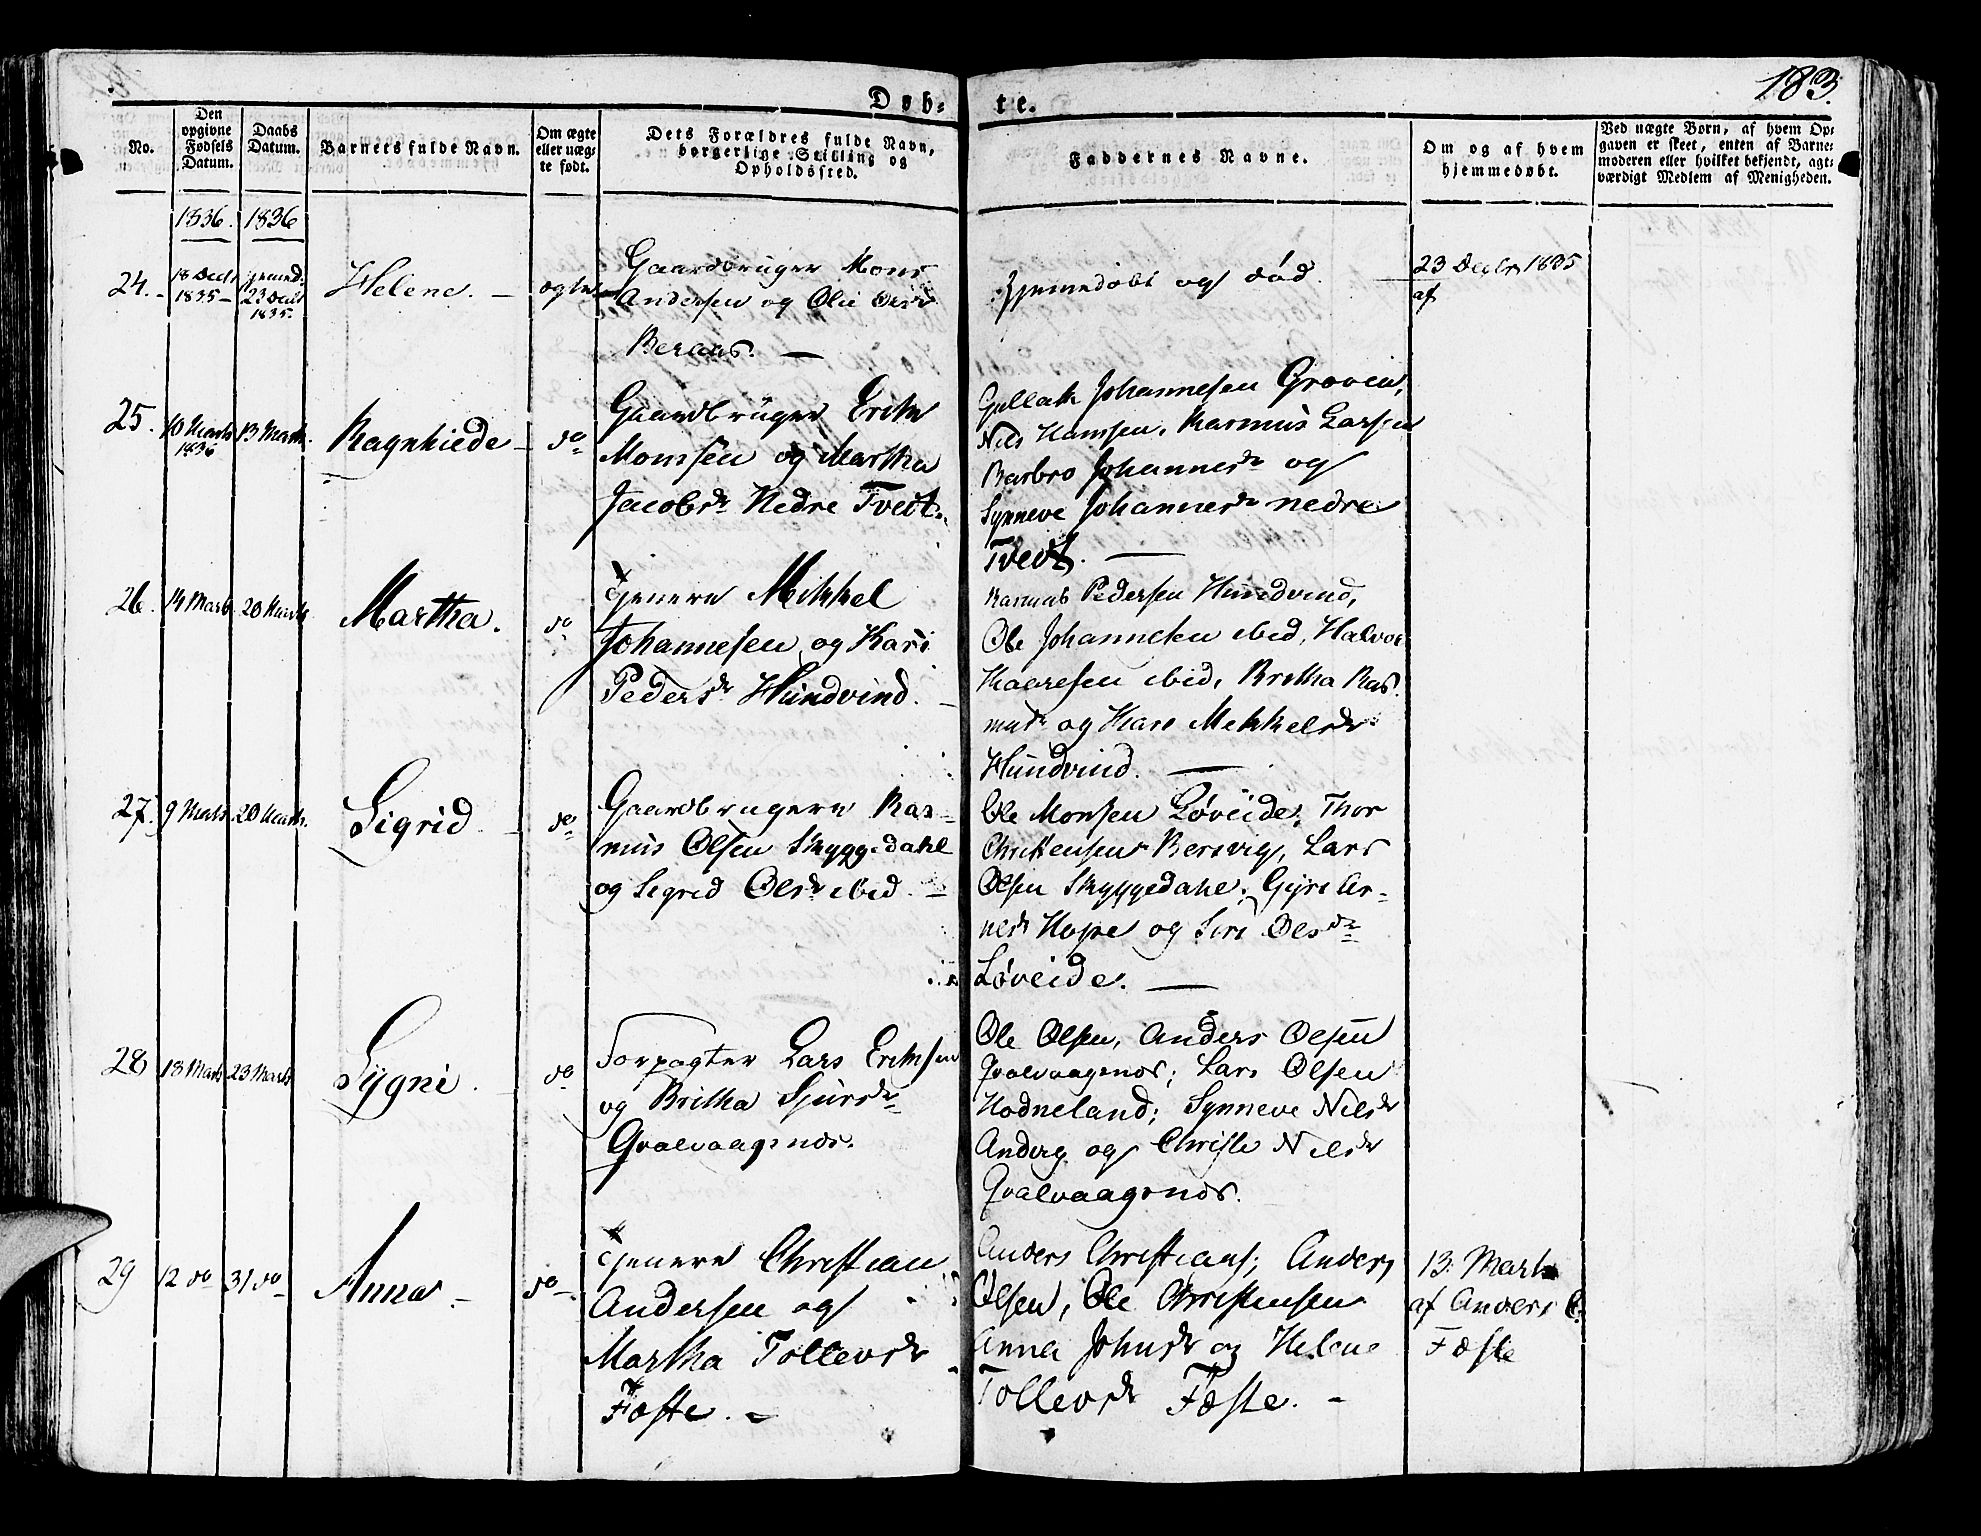 183.
Døb-
te.
No.
Den
opgivne
Fødsels
Datum.
Daabs
Datum.
Barnets fulde Navn.
Om ægte
eller uæg-
te født.
Dets Forældres fulde Navn,
borgerlige Stilling og
Opholdssted.
Faddernes Navne.
Om og af hvem
hjemmedøbt.
Ved uægte Børn, af hvem Op-
gaven er skeet, enten af Barne-
moderen eller hvilket bekjendt, agt-
værdigt Medlem af Menigheden.
1836. 1836
24. -
18 Decbr
1835 -
hjemmed.
23 Decbr
1835.
Helene. -
ægte
Gaardbruger Mons
Andersen og Olie
Beraas. -
Hjemmedøbt og død.
23 Decbr 1835
af
25.
10 Marts
1836
13 Marts.
Ragnhilde -
do
Gaardbruger Erik
Monsen og Martha
Jacobsdr Nedre Tvedt.
Gullak Johannesen Groven,
Nils Hansen, Rasmus Larsen
Barbro Johannesdr og
Synneve Johannesdr nedre
Tvedt. -
26.
14 Marts.
20 Marts
Martha.
do
Tjenere Mikkel
Johannesen og Kari
Pedersdr Hundvind. -
Rasmus Pedersen Hundvind,
Ole Johannesen ibid, Halvor
Kaaresen ibid, Britha Ras-
musdr og Kari Mikkelsdr
Hundvind. -
27.
9 Marts.
20 Marts.
Sigrid -
do
Gaardbrugere Ras-
mus Olsen Skyggedahl
og Sigrid Olsdr ibid. -
Ole Monsen Løveide, Thor
Christensen Bersvig, Lars
Olsen Skyggedahl, Gyri Ar-
nesdr Hope og Siri Olsdr
Løveide. -
28
13 Marts
23 Marts
Sygni. -
do
Forpagter Lars Eriksen
og Britha Sjursdr
Qvalvaagsnes.
Ole Olsen, Anders Olsen
Qvalvaagsnes; Lars Olsen
Hodneland; Synneve Nilsdr
Anderg og Christi Nilsdr
Qvalvaagsnes.
29
12 do
31 do
Anna. -
do -
Tjenere Christian
Andersen og
Martha Tollevsdr
Fæste. -
Anders Christians; Anders
Olsen, Ole Christensen
Anna Johnsdr og Helene
Tollevsdr Fæste. -
13. Marts
af Anders C.
Fæste